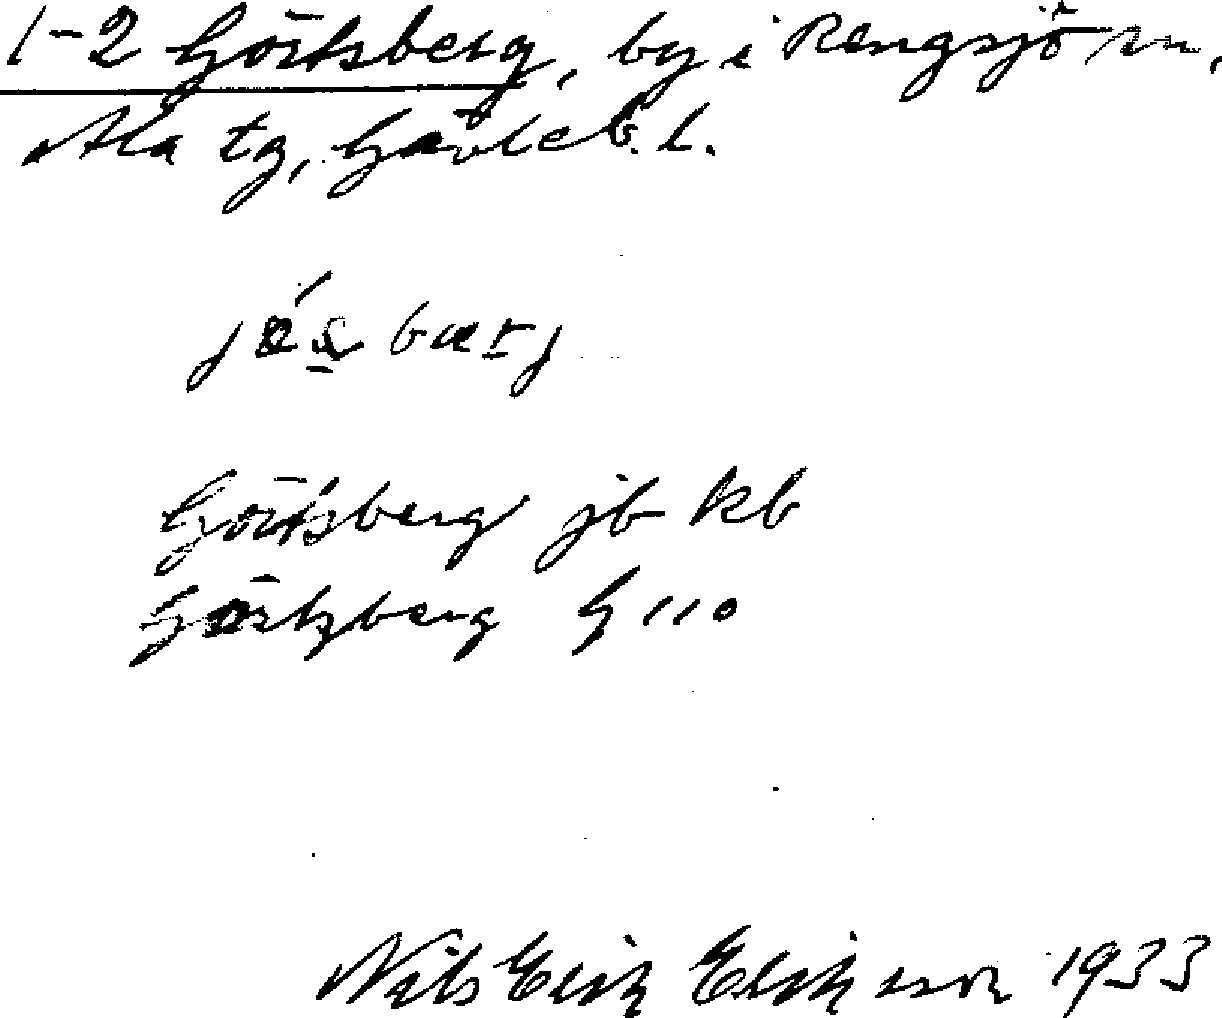 1-2 Görtsberg, by i Rengsjö sn,
Ala tg, Gävleb. l.
Görtsberg jb kb
Görtzberg G 110
Nils Erik Eriksson 1933